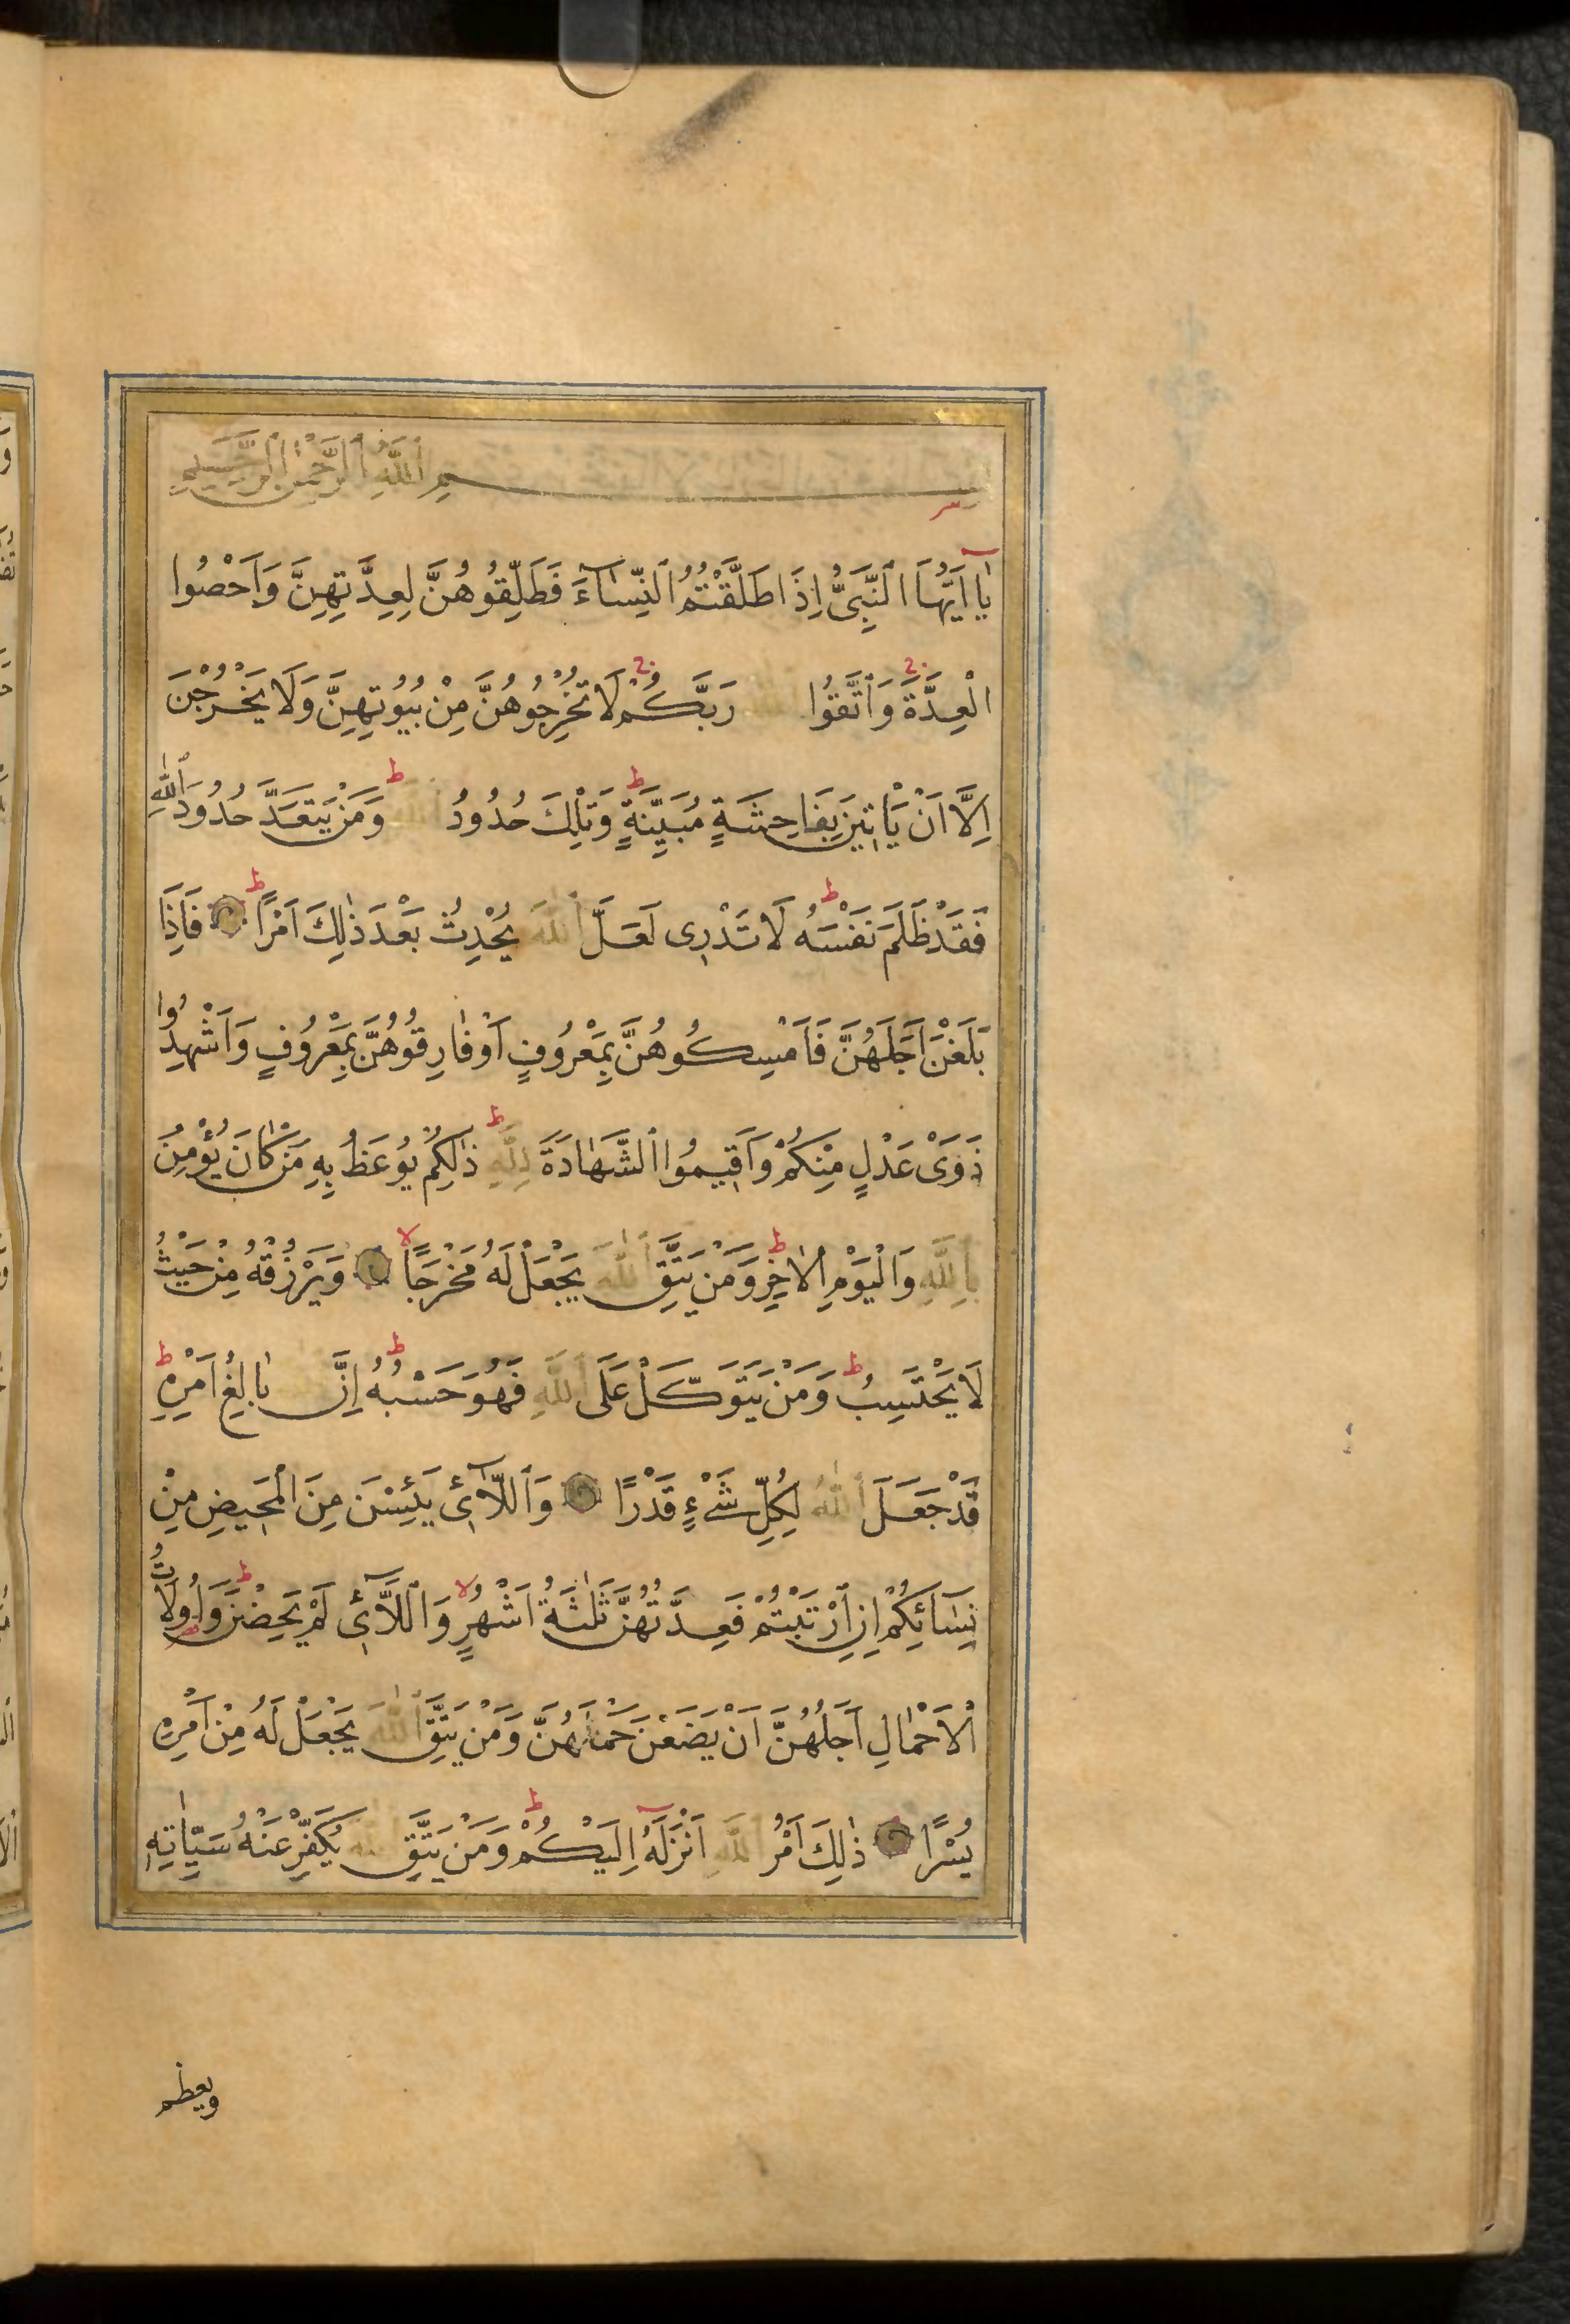 بِسْمِ ٱللّٰهِ ٱلرَّحْمٰنِ ٱلرَّحِيمِ
يٰٓا اَيُّهَا ٱلنَّبِىُّ اِذَا طَلَّقْتُمُ ٱلنِّسَٓاءَ فَطَلِّقُوهُنَّ لِعِدَّتِهِنَّ وَاَحْصُوا
الْعِدَّةَ وَٱتَّقُوا رَبَّكُمْ لَا تُخْرِجُوهُنَّ مِنْ بُيُوتِهِنَّ وَلَا يَخْرُجْنَ
اِلَّا اَنْ يَاْتِينَ بِفَاحِشَةٍ مُبَيِّنَةٍ وَتِلْكَ حُدُودُ ٱللّٰهِ وَمَنْ يَتَعَدَّ حُدُودَ ٱللّٰهِ
فَقَدْ ظَلَمَ نَفْسَهُ لَا تَدْرِى لَعَلَّ ٱللّٰهَ يُحْدِثُ بَعْدَ ذٰلِكَ اَمْرًا فَاِذَا
بَلَغْنَ اَجَلَهُنَّ فَاَمْسِكُوهُنَّ بِمَعْرُوفٍ اَوْ فَارِقُوهُنَّ بِمَعْرُوفٍ وَاَشْهِدُوا
ذَوَىْ عَدْلٍ مِنْكُمْ وَاَقِيمُوا ٱلشَّهَادَةَ لِلّٰهِ ذٰلِكُمْ يُوعَظُ بِهِ مَنْ كَانَ يُؤْمِنُ
بِاللّٰهِ وَالْيَوْمِ ٱلْاٰخِرِ وَمَنْ يَتَّقِ ٱللّٰهَ يَجْعَلْ لَهُ مَخْرَجًا وَيَرْزُقْهُ مِنْ حَيْثُ
لَا يَحْتَسِبُ وَمَنْ يَتَوَكَّلْ عَلَى ٱللّٰهِ فَهُوَ حَسْبُهُ اِنَّ بَالِغُ اَمْرِهِ
قَدْ جَعَلَ ٱللّٰهُ لِكُلِّ شَىْءٍ قَدْرًا وَٱللَّٓائِى يَئِسْنَ مِنَ الْمَحِيضِ مِنْ
نِسَائِكُمْ اِنِ ٱرْتَبْتُمْ فَعِدَّتُهُنَّ ثَلٰثَةُ اَشْهُرٍ وَٱللَّٓائِى لَمْ يَحِضْنَ وَاُولَاتُ
ٱلْاَحْمَالِ اَجَلُهُنَّ اَنْ يَضَعْنَ حَمْلَهُنَّ وَمَنْ يَتَّقِ ٱللّٰهَ يَجْعَلْ لَهُ مِنْ اَمْرِهِ
يُسْرًا ذٰلِكَ اَمْرُ ٱللّٰهِ اَنْزَلَهُٓ اِلَيْكُمْ وَمَنْ يَتَّقِ ٱللّٰهَ يُكَفِّرْ عَنْهُ سَيِّاٰتِهِ
ويعظم